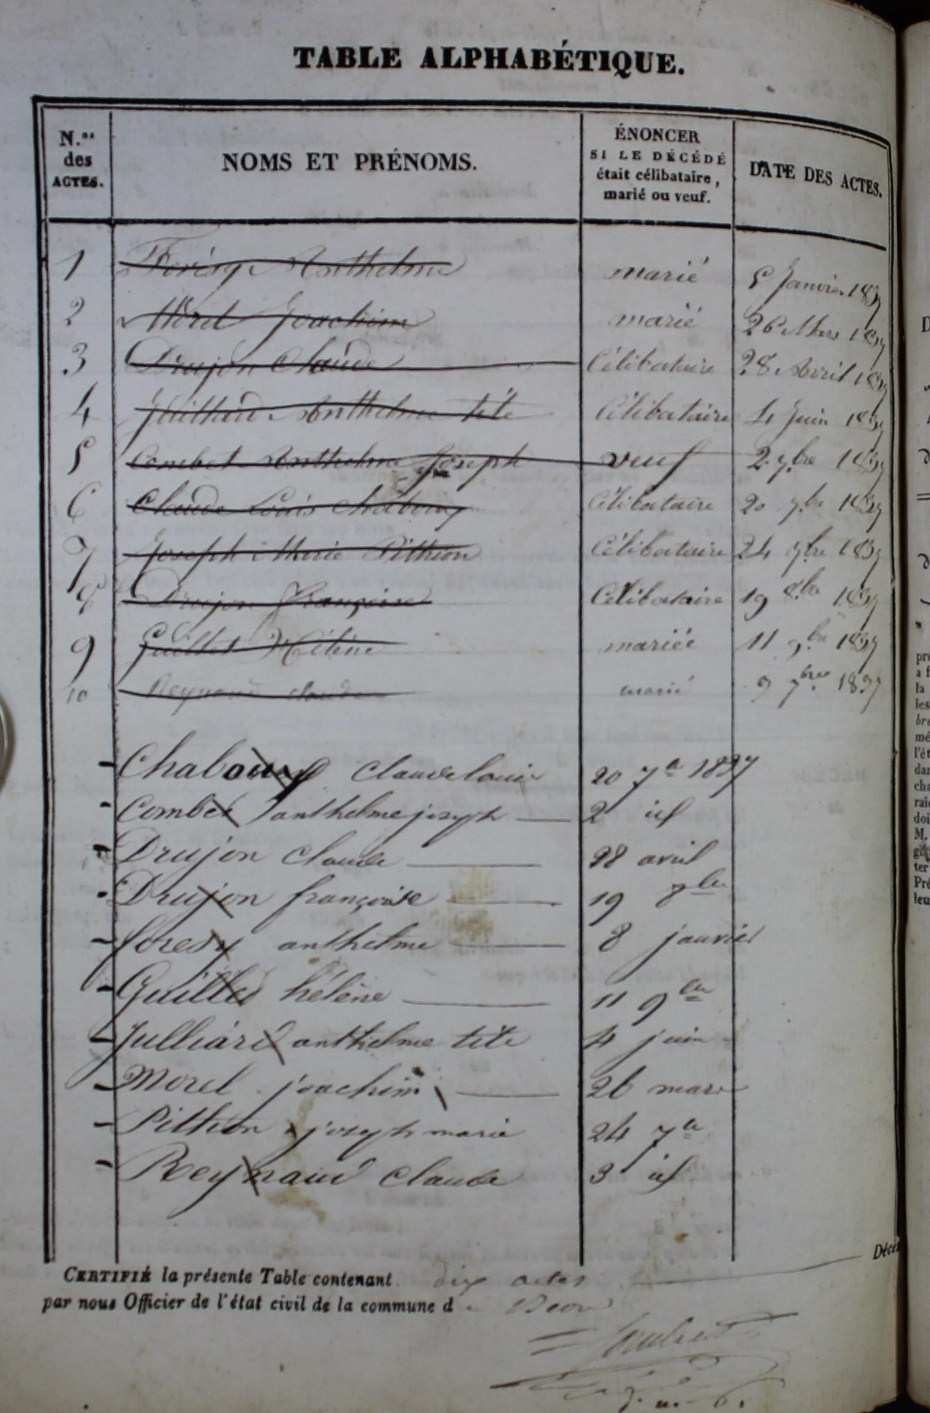 TABLE ALPHABÉTIQUE.
N.os des ACTES.
NOMS ET PRÉNOMS.
ÉNONCER
SI LE DÉCÉDÉ
était célibataire,
marié ou veuf.
DATE DES ACTES.
1 Anthelme marié Janvier 1837
2 Morel Joachim marié 26 Mars 1837
3 Drujon Claude Célibataire 28 Avril 1837
4 Juilliard Anthelme tete Célibataire 4 Juin 1837
5 Combet Anthelme Joseph veuf 2 7bre 1837
6 Claude Louis Chabouy Célibataire 20 7bre 1837
7 Joseph Marie Pithion Célibataire 24 7bre 1837
8 Drujon Françoise Célibataire 19 8bre 1837
9 Guillet Hélène mariée 11 9bre 1837
10 Reynaud claude marié 3 7bre 1837
- Chabouy Claude louis 20 7bre 1837
- Combet anthelme joseph 2 id
- Drujon claude 28 avril
- Drujon françoise 19 8bre
- anthelme 8 janvier
- Guillet hélène 11 9bre
- Julliard anthelme tete 4 juin
- Morel joachim 26 mars
- Pithion joseph marie 24 7bre
- Reynaud claude 3 id
CERTIFIÉ la présente Table contenant dix actes
par nous Officier de l'état civil de la commune de